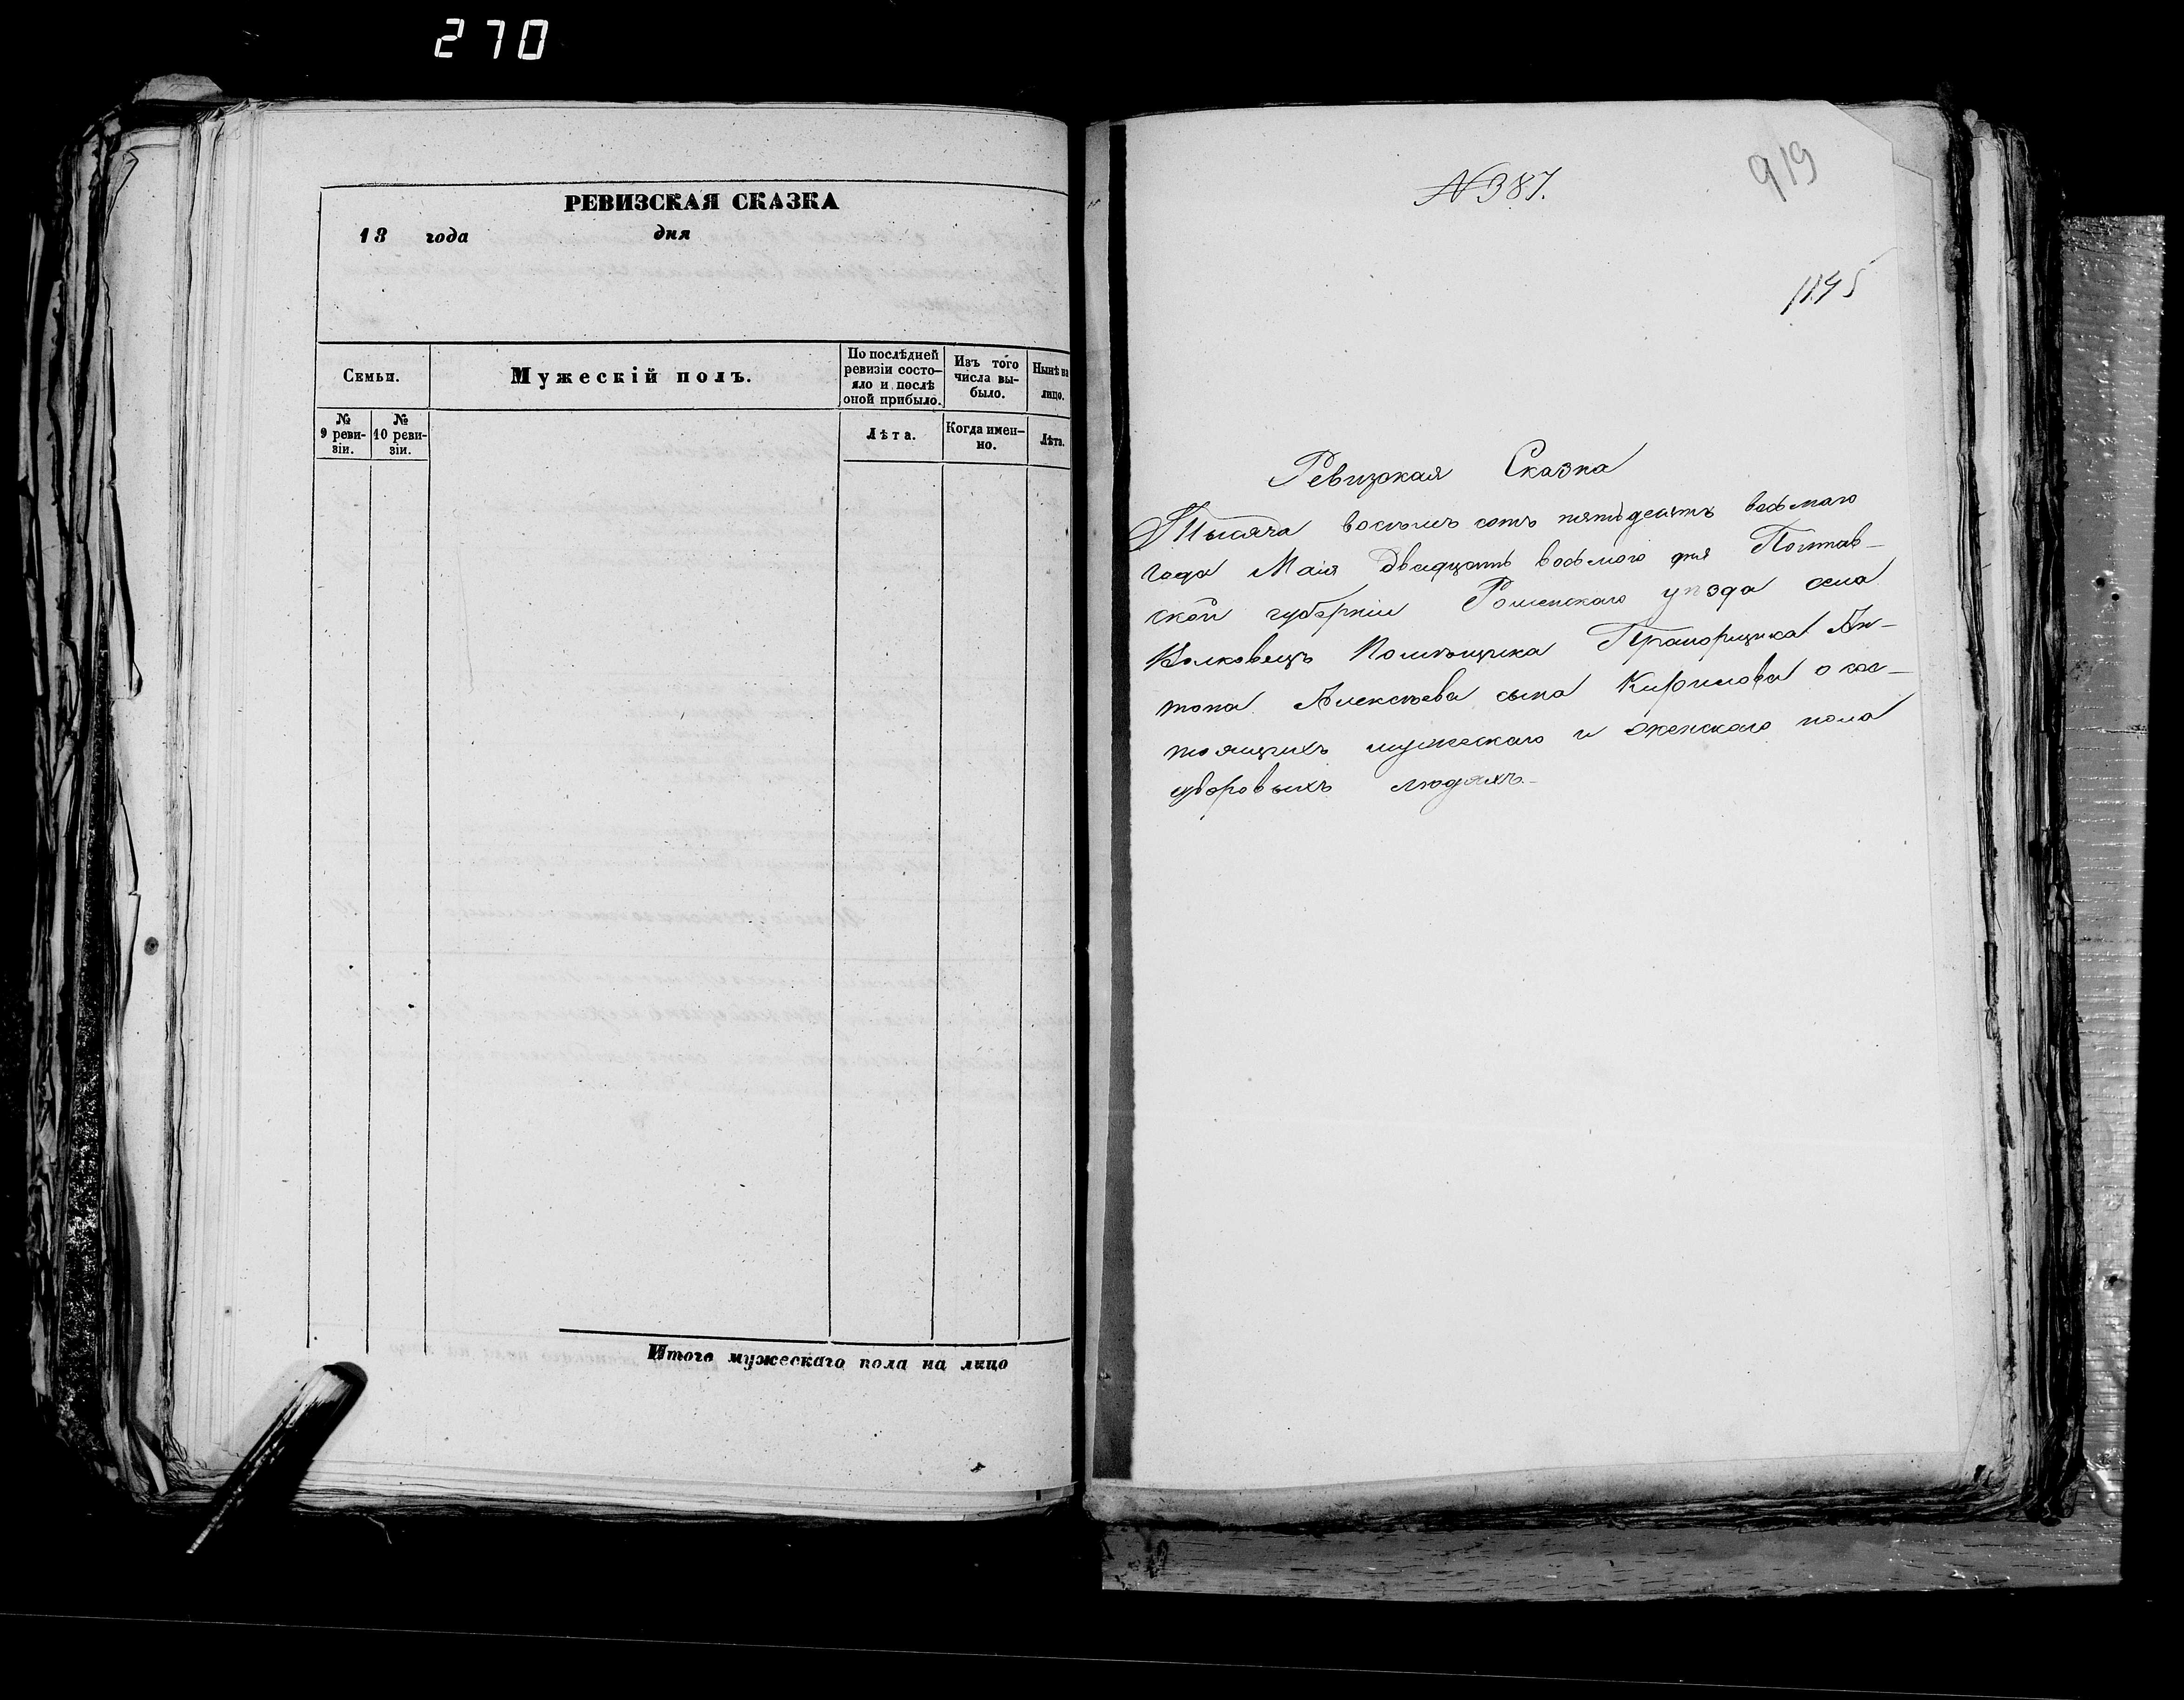 270
РЕВИЗСКАЯ СКАЗКА
18 года дня
Семьи.
Мужескій полъ.
По послѣдней ревизіи состо-
яло и послѣ оной прибыло.
Изъ того числа вы-
было.
Нынѣ на лицо.
№ 9 реви-
зіи.
№ 10 реви-
зіи.
Лѣта.
Когда имен-
но.
Лѣта.
Итого мужескаго пола на лицо
№387.
919
1145
Ревизская Сказка
Тысяча восемь сотъ пятьдесятъ восьмаго
года Маія двадцать восьмого дня Полтав-
ской губерніи Роменскаго уѣзда села
Волковецъ Помѣщика Прапорщика Ан-
тона Алексѣева сына Кирилова о сос-
тоящихъ мужескаго и женскаго пола
дворовыхъ людяхъ.-